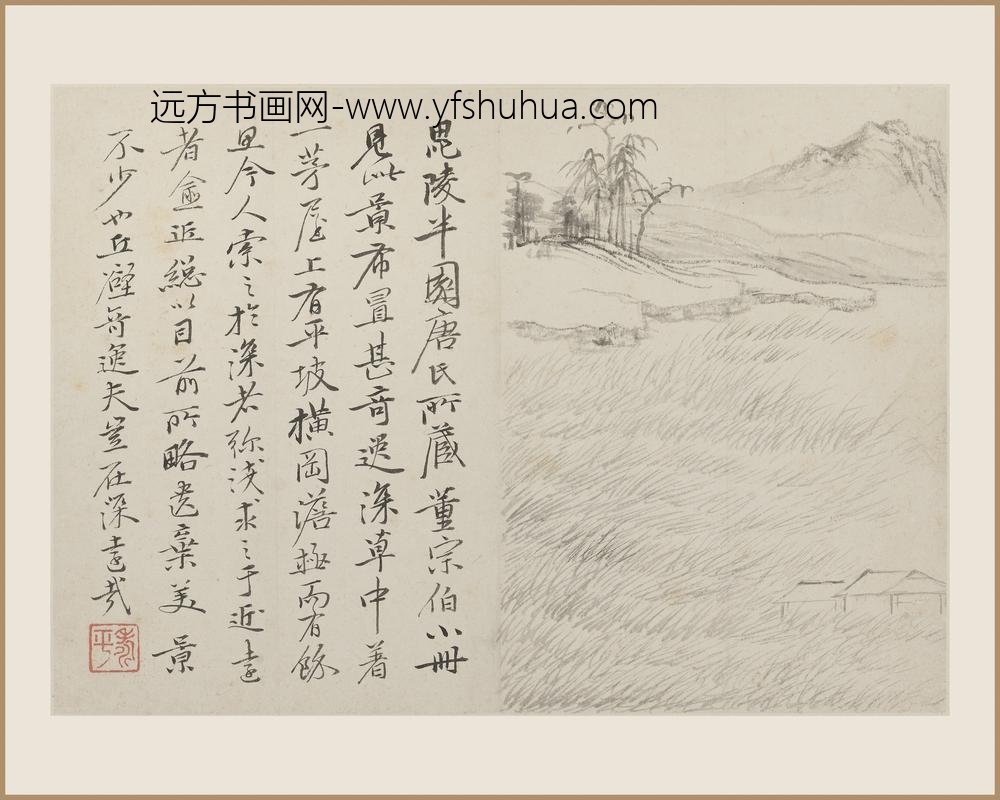 远方书画网-www.yfshuhua.com
毘陵半園唐氏所藏董宗伯小冊
見此景布置甚奇逸深草中着
一茅屋上有平坡橫岡澹極而有餘
思今人索之於深者弥淺求之于近遠
者愈近總以目前所略遺棄美景
不少也丘壑奇逸夫豈在深遠哉